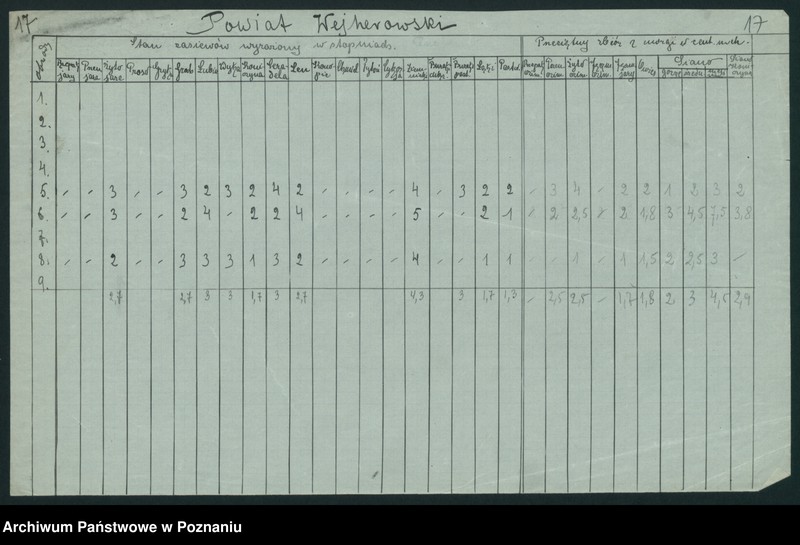 17 Powiat Wejherowski 17
Stan zasiewów wyrażony w stopniach. Przeciętny zbiór z morgi w cent. metr.
Żyto jare Proso Gryka Groch Łubin Wyka Koniczyna Seradela Len Konopie Chmiel Tytoń Cykorja Łąki Pastw. Siano
górne średn.
1.
2.
3.
4.
5. " " 3 " " 3 2 3 2 4 2 " " " " 4 " 3 2 2 " 3 4 " 2 2 1 2 3 2
6. " " 3 " " 2 4 " 2 2 4 " " " " 5 " " 2 1 " 2 2,5 " 2 1,8 3 4,5 7,5 3,8
7.
8. " " 2 " " 3 3 3 1 3 2 " " " " 4 " " 1 1 " " 1 " 1 1,5 2 2,5 3 "
9.
2,7 2,7 3 3 1,7 3 2,7 4,3 3 1,7 1,3 " 2,5 2,5 " 1,7 1,8 2 3 4,5 2,9
Archiwum Państwowe w Poznaniu